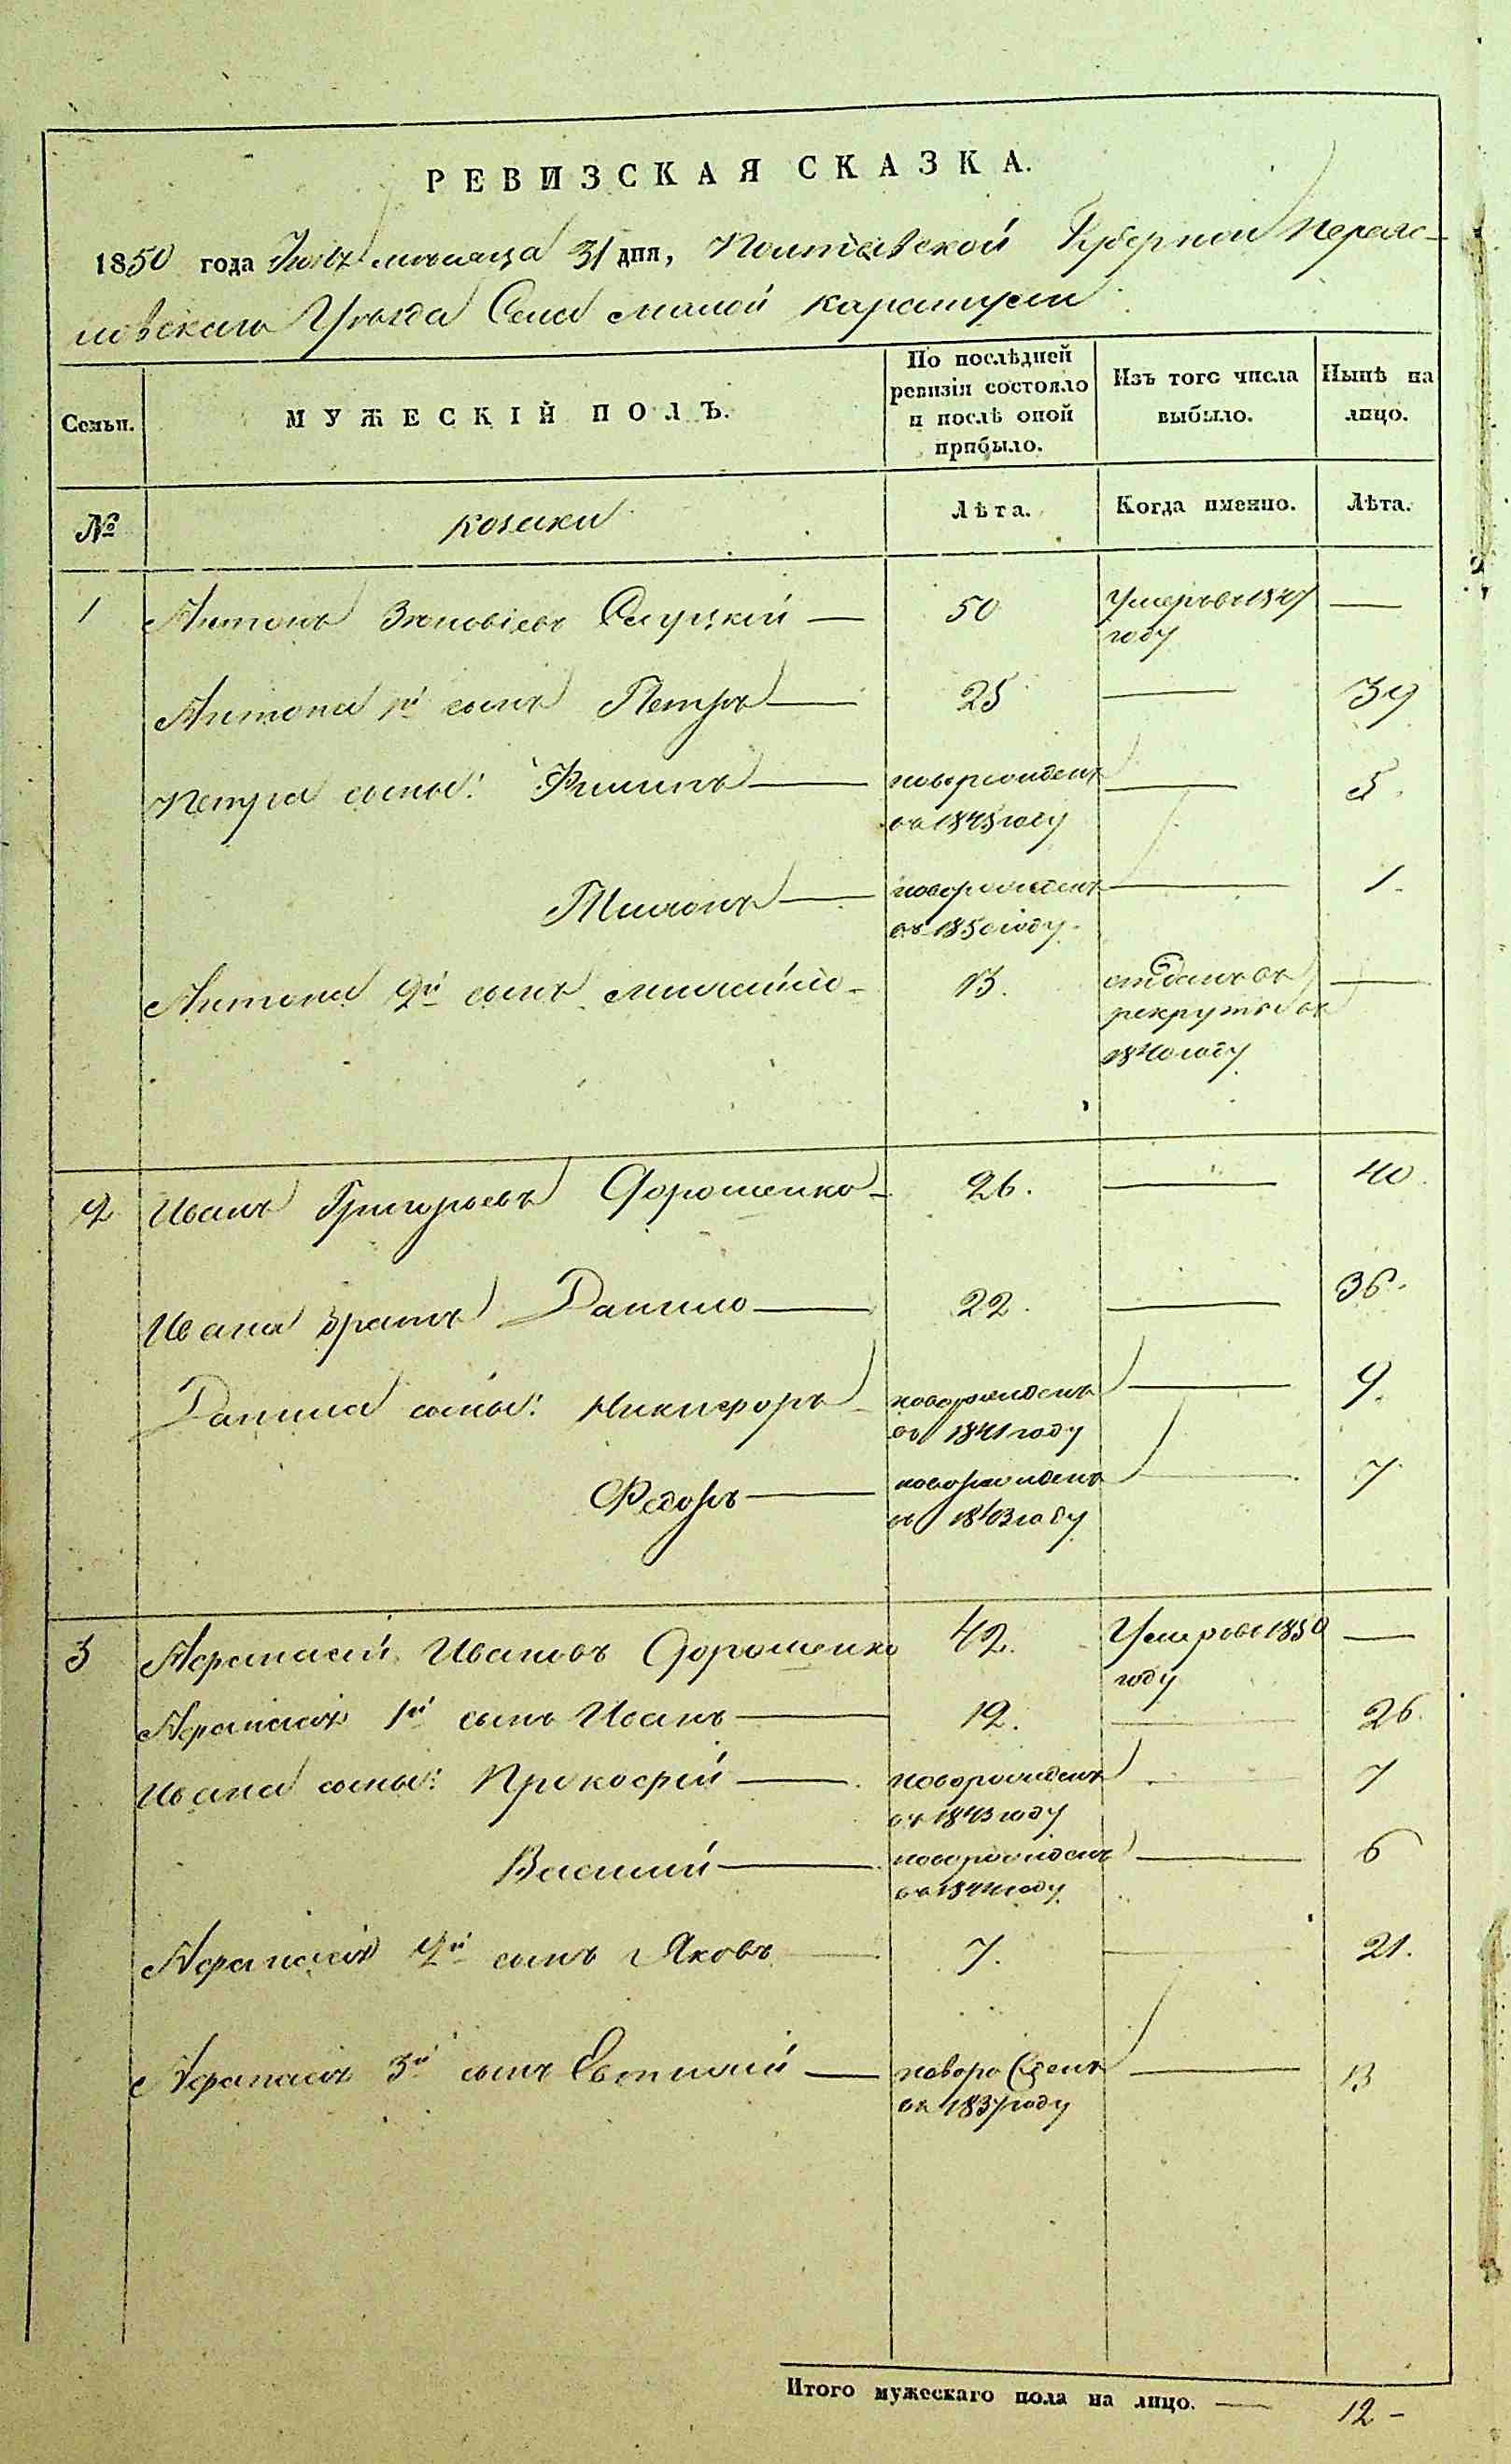 РЕВИЗСКАЯ СКАЗКА.
1850 года Июля месяца 31 дня, Полтавской Губернии Переяс-
лавскаго Уѣзда Села малой каратули
Семьи.
МУЖЕСКІЙ ПОЛЪ.
По послѣдней ревизіи состояло и послѣ оной прибыло.
Изъ того числа выбыло.
Нынѣ на лицо.
№
козаки
Лѣта.
Когда именно.
Лѣта.
1 Антонъ Зѣновіевъ Слуцкій — 50 Умеръ въ 1847 —
году
Антона 1й сынъ Петръ — 25 — 39
Петра сыны: Филипъ — новорожденъ — 5.
въ 1845 году
Тимонъ — новорожденъ — 1.
въ 1850 году
Антона 2й сынъ михайло - 13. отданъ въ —
рекруты въ
1840 году
2 Иванъ Григорьевъ Дорошенко - 26. — 40.
Ивана братъ Данило — 22. — 36.
Данила сыны: Никифоръ новорожденъ — 9.
въ 1841 году
Федоръ — новорожденъ — 7
въ 1843 году
3 Афанасій Ивановъ Дорошенко 42. Умеръ въ 1850 —
году
Афанасія 1й сынъ Иванъ — 12. — 26.
Ивана сыны: Прокофій — новорожденъ — 7
въ 1843 году
Василій — новорожденъ — 6
въ 1844 году
Афанасія 2й сынъ Яковъ — 7. — 21.
Афанасія 3й сынъ Евтихій — новорожденъ — 13
въ 1837 году
Итого мужескаго пола на лицо. — 12 -